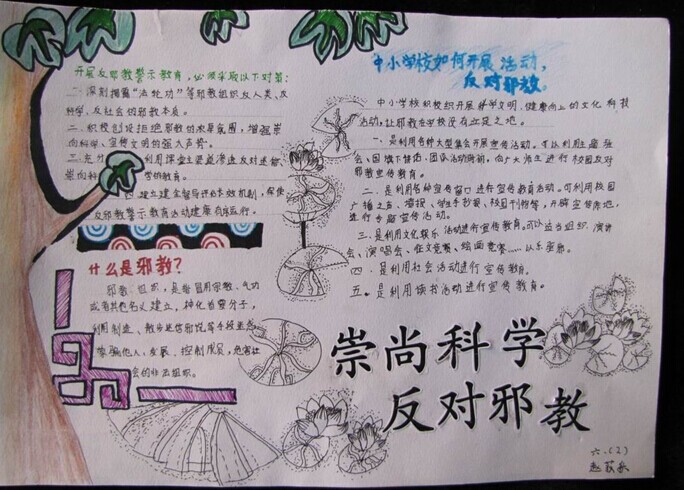 开展反邪教警示教育，必须采取以下对策：
一.深刻揭露“法轮功”等邪教组织反人类、反
科学、反社会的邪教本质。
二.积极创设拒绝邪教的浓厚氛围，增强崇
尚科学、宣传文明的强大声势。
三.充分 利用课堂主渠道渗透反对迷信、
崇尚科 学的教育。
四.建立建全督导评估长效机制，保使
反邪教警示教育活动健康有序运行。
什么是邪教？
邪教组织，是指冒用宗教、气功
或者其他名义建立，神化首要分子，
利用制造、散布迷信邪说等手段蛊惑、
蒙骗他人，发展、控制成员，危害社
会的非法组织。
中小学校如何开展活动，
反对邪教。
中小学校积极组织开展科学文明、健康向上的文化科技
活动，让邪教在学校没有立足之地。
一.是利用各种大型集会开展宣传活动。可以利用主题班
会、国旗下讲话、团队活动時间，向广大师生进行校园反对
邪教宣传教育。
二.是利用各种宣传窗口进行宣传教育活动。可利用校园
广播之声、墙报、学生手抄报、校园刊物等，开辟宣传阵地，
进行专题宣传活动。
三.是利用文化娱乐活动进行宣传教育。可以适当组织、演讲
会、演唱会、作文竞赛、绘画竞赛……
四.是利用社会活动进行宣传教育。
五.是利用读书活动进行宣传教育。
崇尚科学
反对邪教
六.(2)
赵